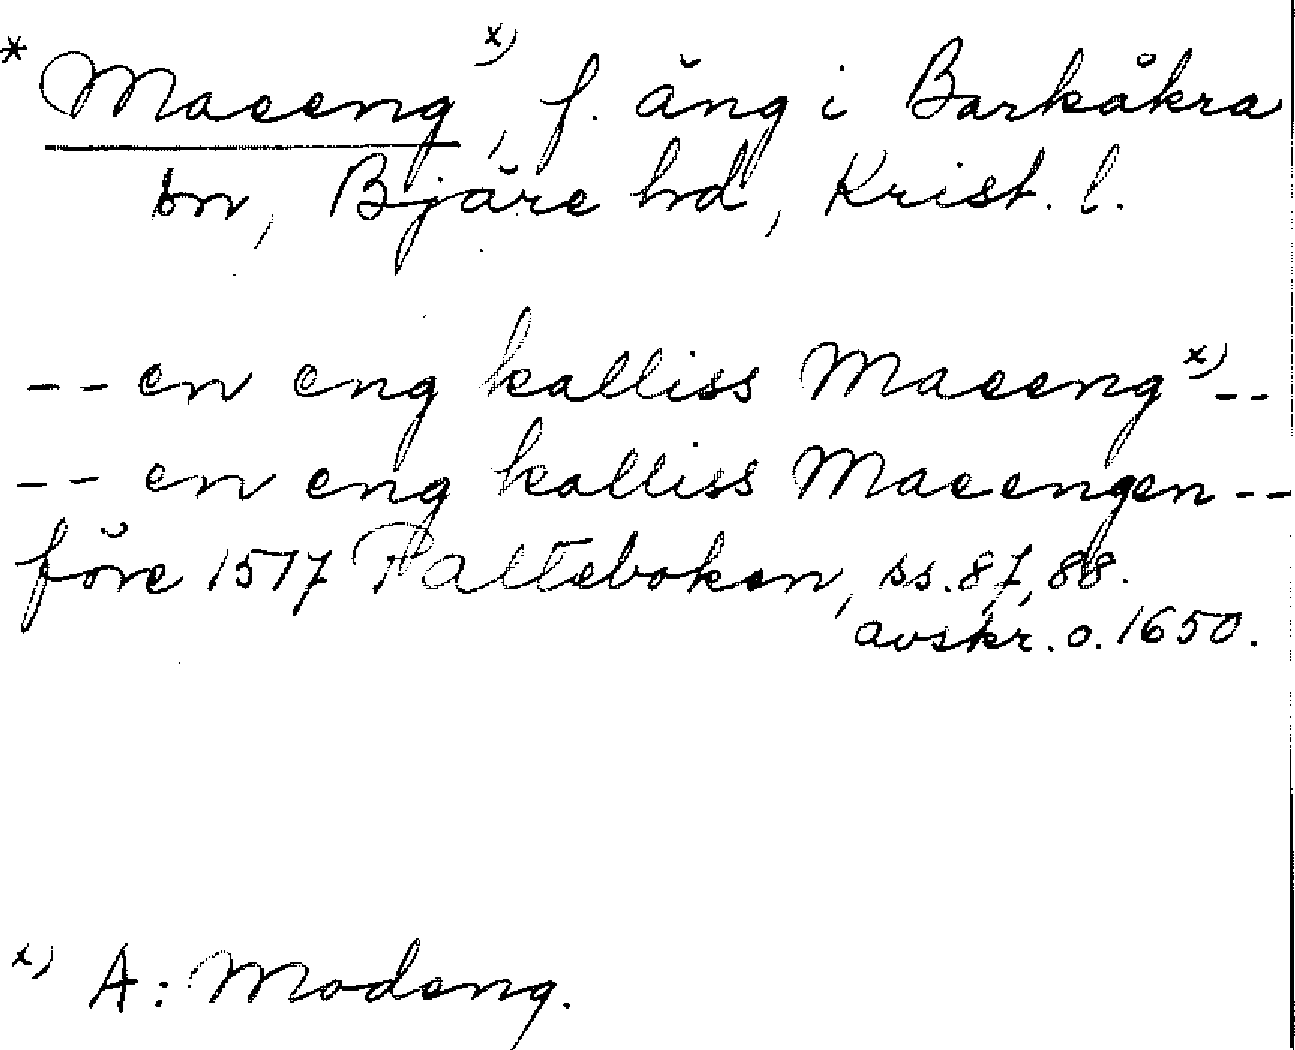 * Maeeng x), f. äng i Barkåkra
sn, Bjäre hd, Krist. l.
-- en eng kalliss Maeeng x) --
-- en eng kalliss Maeengen --
före 1517 Palteboken, ss. 87, 88.
avskr. o. 1650.
x) A: Modeng.